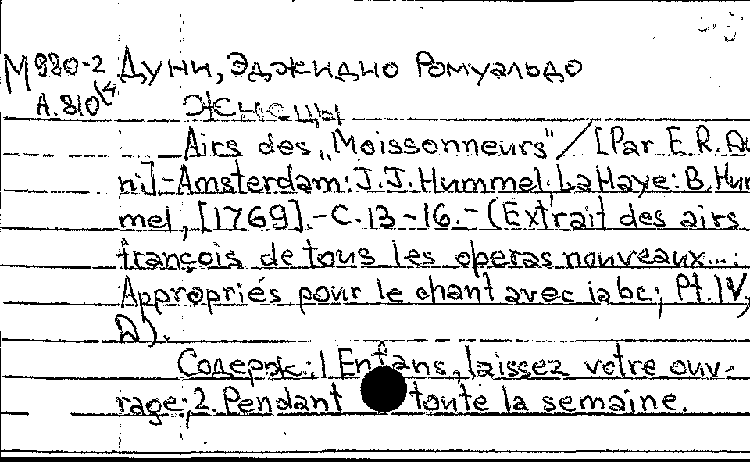 М980-2 Дуни, Эджидио Ромуальдо
А.810
Жнецы
Airs des „Moissonneurs"/[Par E.R.Du
ni]-Amsterdam: J.J.Hummel; La Haye: B.Hum
mel, [1769].-С.13-16.-(Extrait des airs
françois de tous les operas nouveaux...:
Appropriés pour le chant avec
Pt.IV,
D).
Содерж: 1 Enfans, laissez votre ouv-
rage; 2. Pendant toute la semaine.